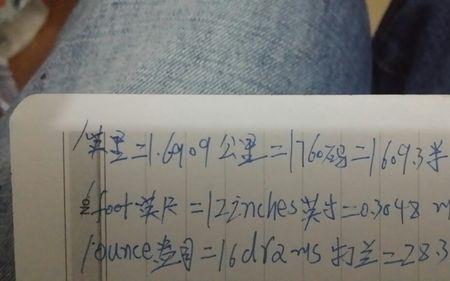 1英里=1.6909公里=1760码=1609.3米
1foot英尺=12inches英寸=0.3048 m
1ounce盎司=16drams打兰=28.3